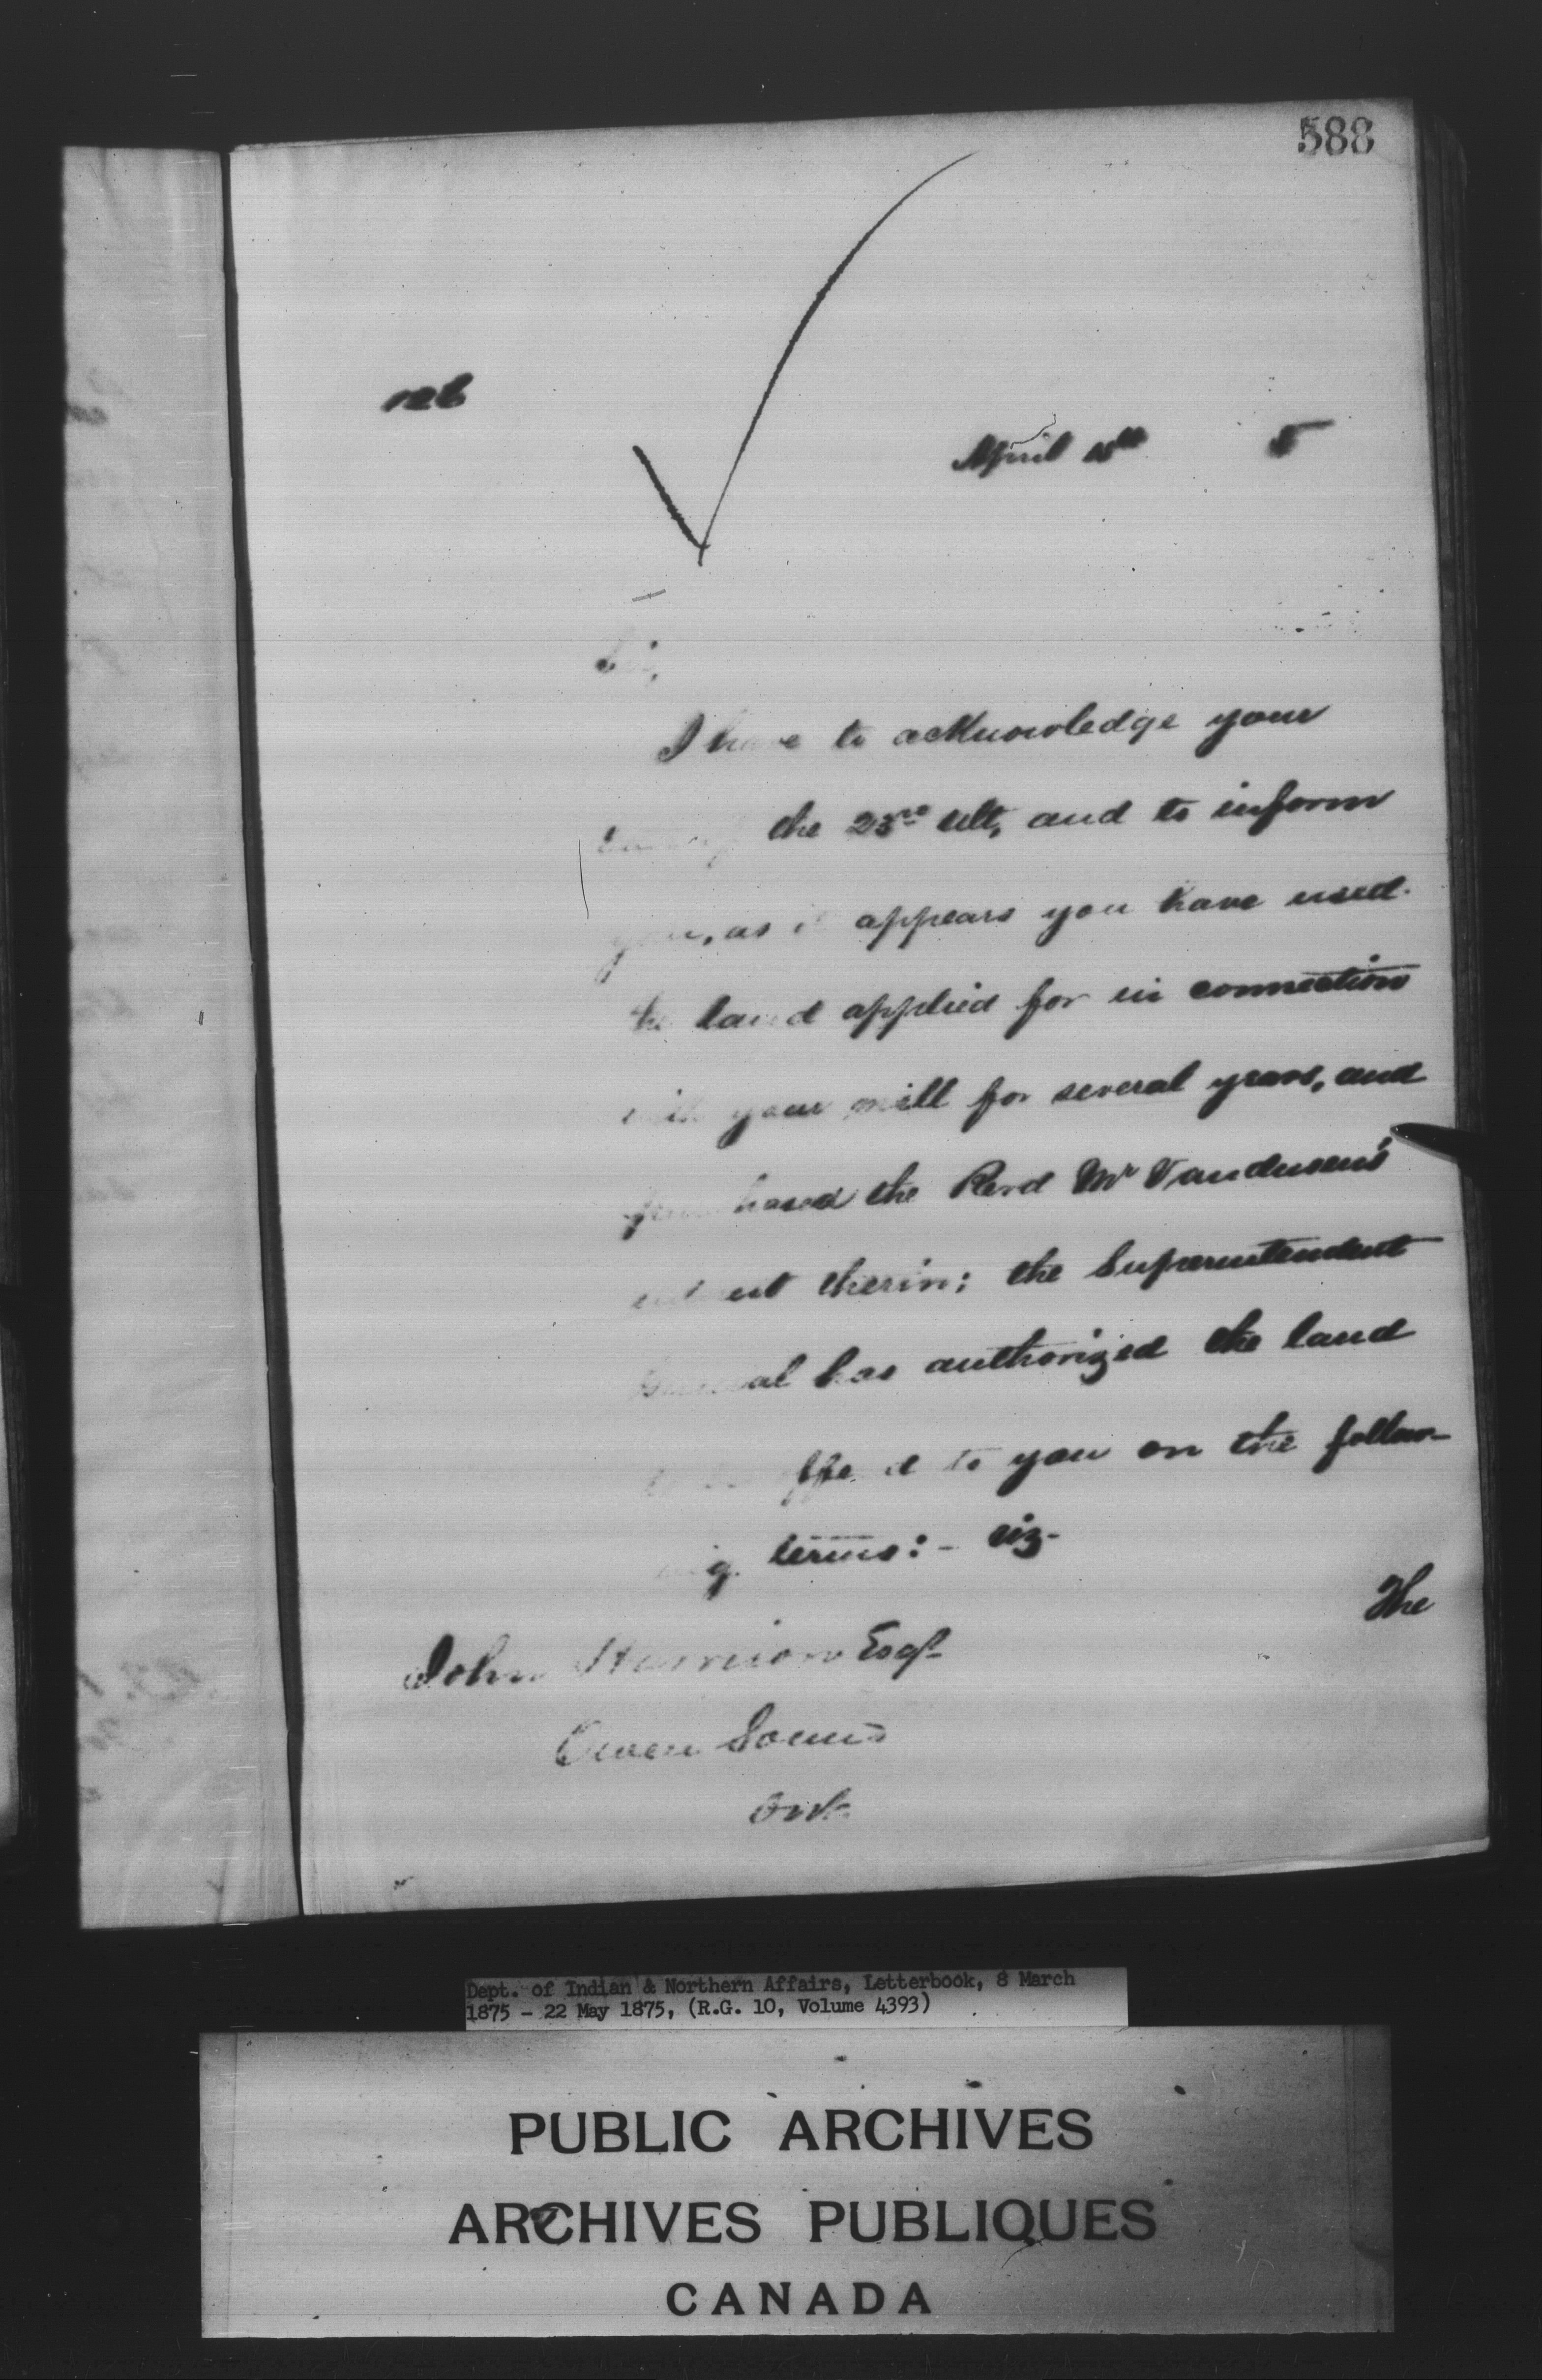 588
April 5
Sir,
I have to acknowledge your
the 23rd ult, and to inform
you, as it appears you have used
the land applied for in connection
with your mill for several years, and
purchased the Revd Mr Vandusen's
therin; the Superintendent
General has authorized the land
to be offered to you on the follow-
ing terms:- viz-
The
John Harrison Esqr
Owen Sound
Ont
Dept. of Indian & Northern Affairs, Letterbook, 8 March
1875 - 22 May 1875, (R.G. 10, Volume 4393)
PUBLIC ARCHIVES
ARCHIVES PUBLIQUES
CANADA